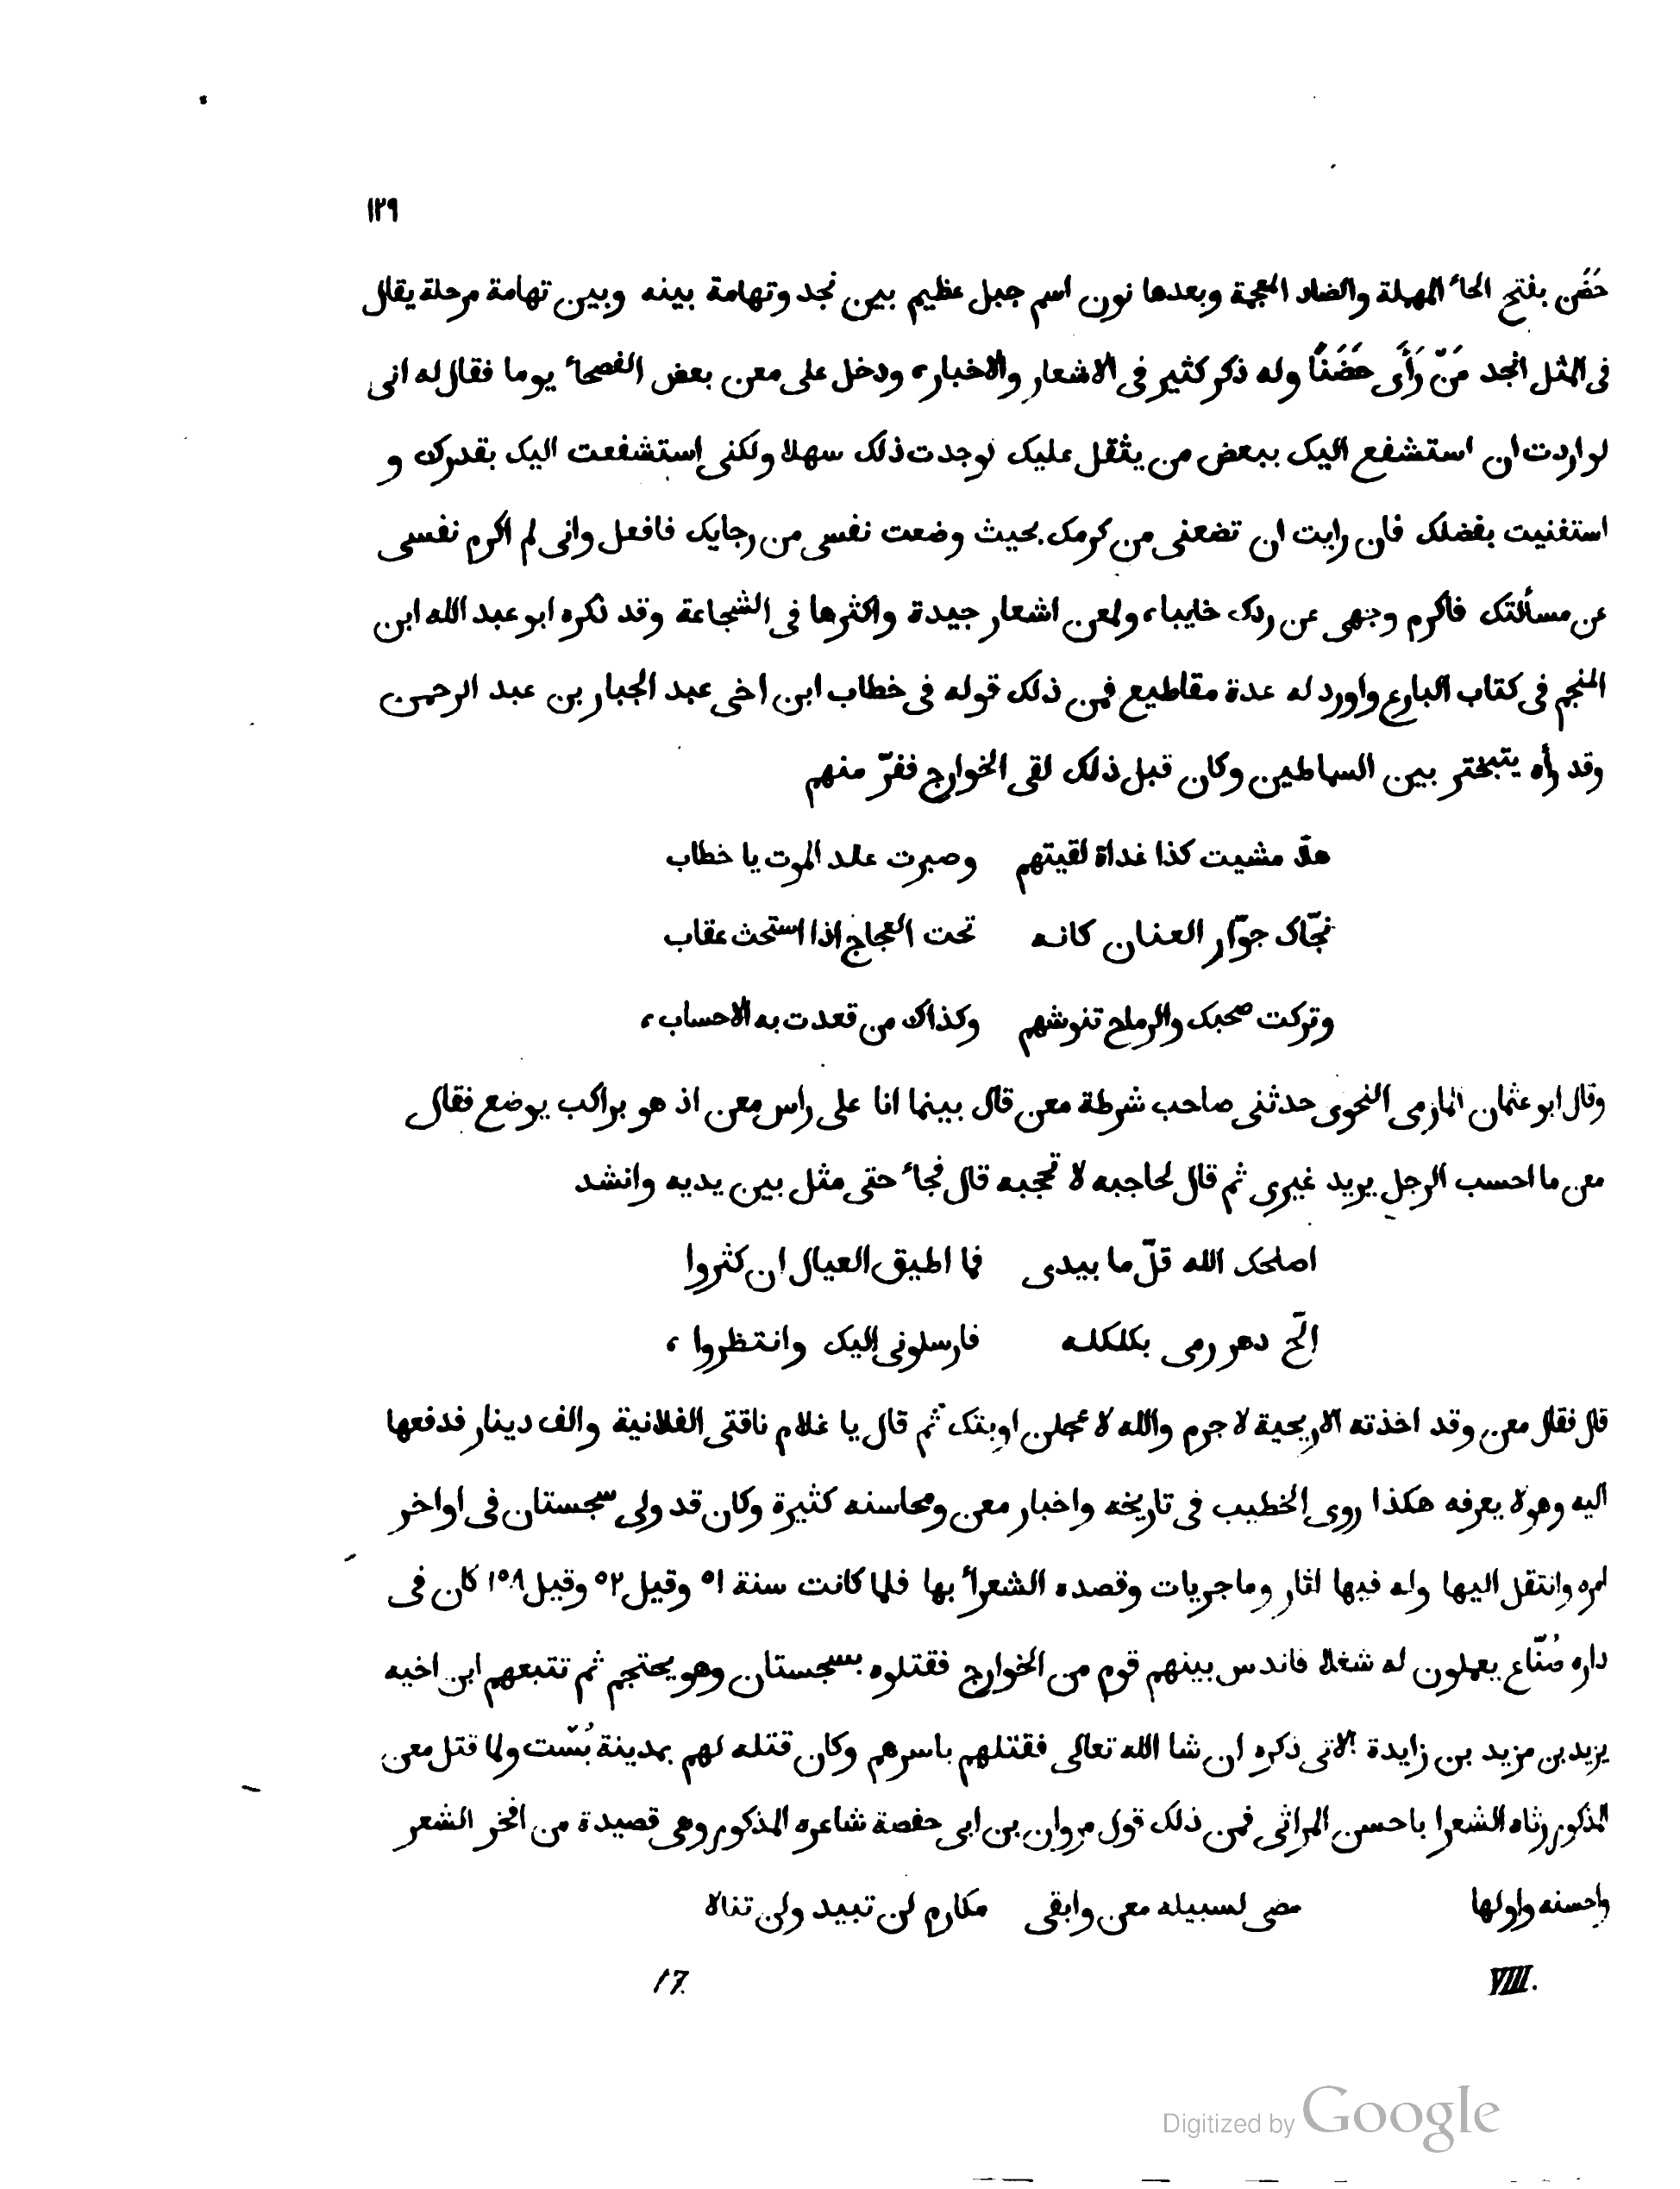 ١٢٩
حَضَن بفتح الحاء المهملة والضاد المعجمة وبعدها نون اسم جبل عظيم بين نجد وتهامة بينه وبين تهامة مرحلة يقال
فى المثل انجد مَنّ رَأَى حَضَنًا وله ذكر كثير فى الاشعار والاخبار، ودخل على معن بعض الفصحاء يوما فقال له انى
لو اردت ان استشفع اليك ببعض من يثقل عليك لوجدت ذلك سهلا ولكنى استشفعت اليك بقدرك و
استغنيت بفضلك فان رايت ان تضعنى من كرمك بحيث وضعت نفسى من رجايك فافعل وانى لم اكرم نفسى
عن مسألتك فاكرم وجهى عن ردك خايبا، ولمعن اشعار جيدة واكثرها فى الشجاعة وقد ذكره ابو عبد الله ابن
المنجم فى كتاب البارع واورد له عدة مقاطيع فمن ذلك قوله فى خطاب ابن اخى عبد الجبار بن عبد الرحمن
وقد رأه يتبختر بين السماطين وكان قبل ذلك لقى الخوارج ففرّ منهم
هلّا مشيت كذا غداة لقيتهم وصبرت عند الموت يا خطاب
نجّاك جوّار العنان كانه تحت العجاج اذا استحث عقاب
وتركت صحبك والرماح تنوشهم وكذاك من قعدت به الاحساب،
وقال ابو عثمان المازمى النحوى حدثنى صاحب شرطة معن قال بينما انا على راس معن اذ هو براكب يوضع فقال
معن ما احسب الرجل يريد غيرى ثم قال لحاجبه لا تحجبه قال فجاء حتى مثل بين يديه وانشد
اصلحك الله قلّ ما بيدى فما اطيق العيال ان كثروا
الحّ دهر رمى بكلكله فارسلونى اليك وانتظروا،
قال فقال معن وقد اخذته الاريحية لا جرم والله لا عجلن اوبتك ثم قال يا غلام ناقتى الفلانية والف دينار فدفعها
اليه وهو لا يعرفه هكذا روى الخطيب فى تاريخه واخبار معن ومحاسنه كثيرة وكان قد ولى سجستان فى اواخر
امره وانتقل اليها وله فيها اثار وماجريات وقصده الشعراء بها فلما كانت سنة ٥١ وقيل ٥٢ وقيل ١٥٨ كان فى
داره صُنّاع يعملون له شغلا فاندس بينهم قوم من الخوارج فقتلوه بسجستان وهو يحتجم ثم تتبعهم ابن اخيه
يزيد بن مزيد بن زايدة الاتى ذكره ان شا الله تعالى فقتلهم باسرهم وكان قتله لهم بمدينة بُسّت ولما قتل معن
المذكور رثاه الشعرا باحسن المراثى فمن ذلك قول مروان بن ابى حفصة شاعره المذكور وهى قصيدة من افخر الشعر
واحسنه واولها مضى لسبيله معن وابقى مكارم لن تبيد ولن تنالا
VIII. 17.
Digitized by Google